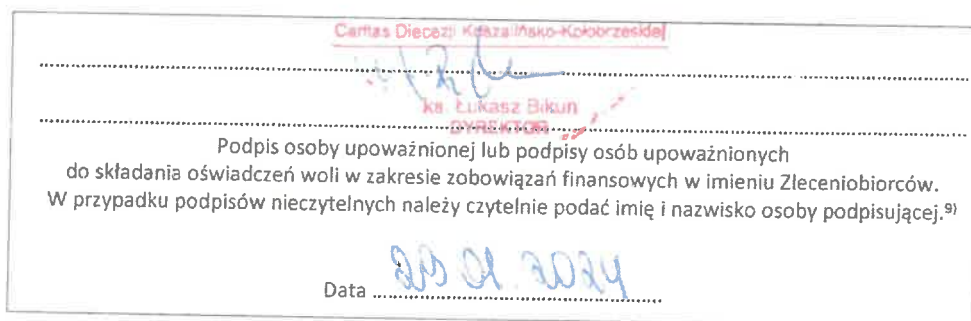 Caritas Diecezji Koszalińsko-Kołobrzeskiej
ks. Łukasz Bikun
DYREKTOR
Podpis osoby upoważnionej lub podpisy osób upoważnionych
do składania oświadczeń woli w zakresie zobowiązań finansowych w imieniu Zleceniobiorców.
W przypadku podpisów nieczytelnych należy czytelnie podać imię i nazwisko osoby podpisującej.⁹⁾
Data